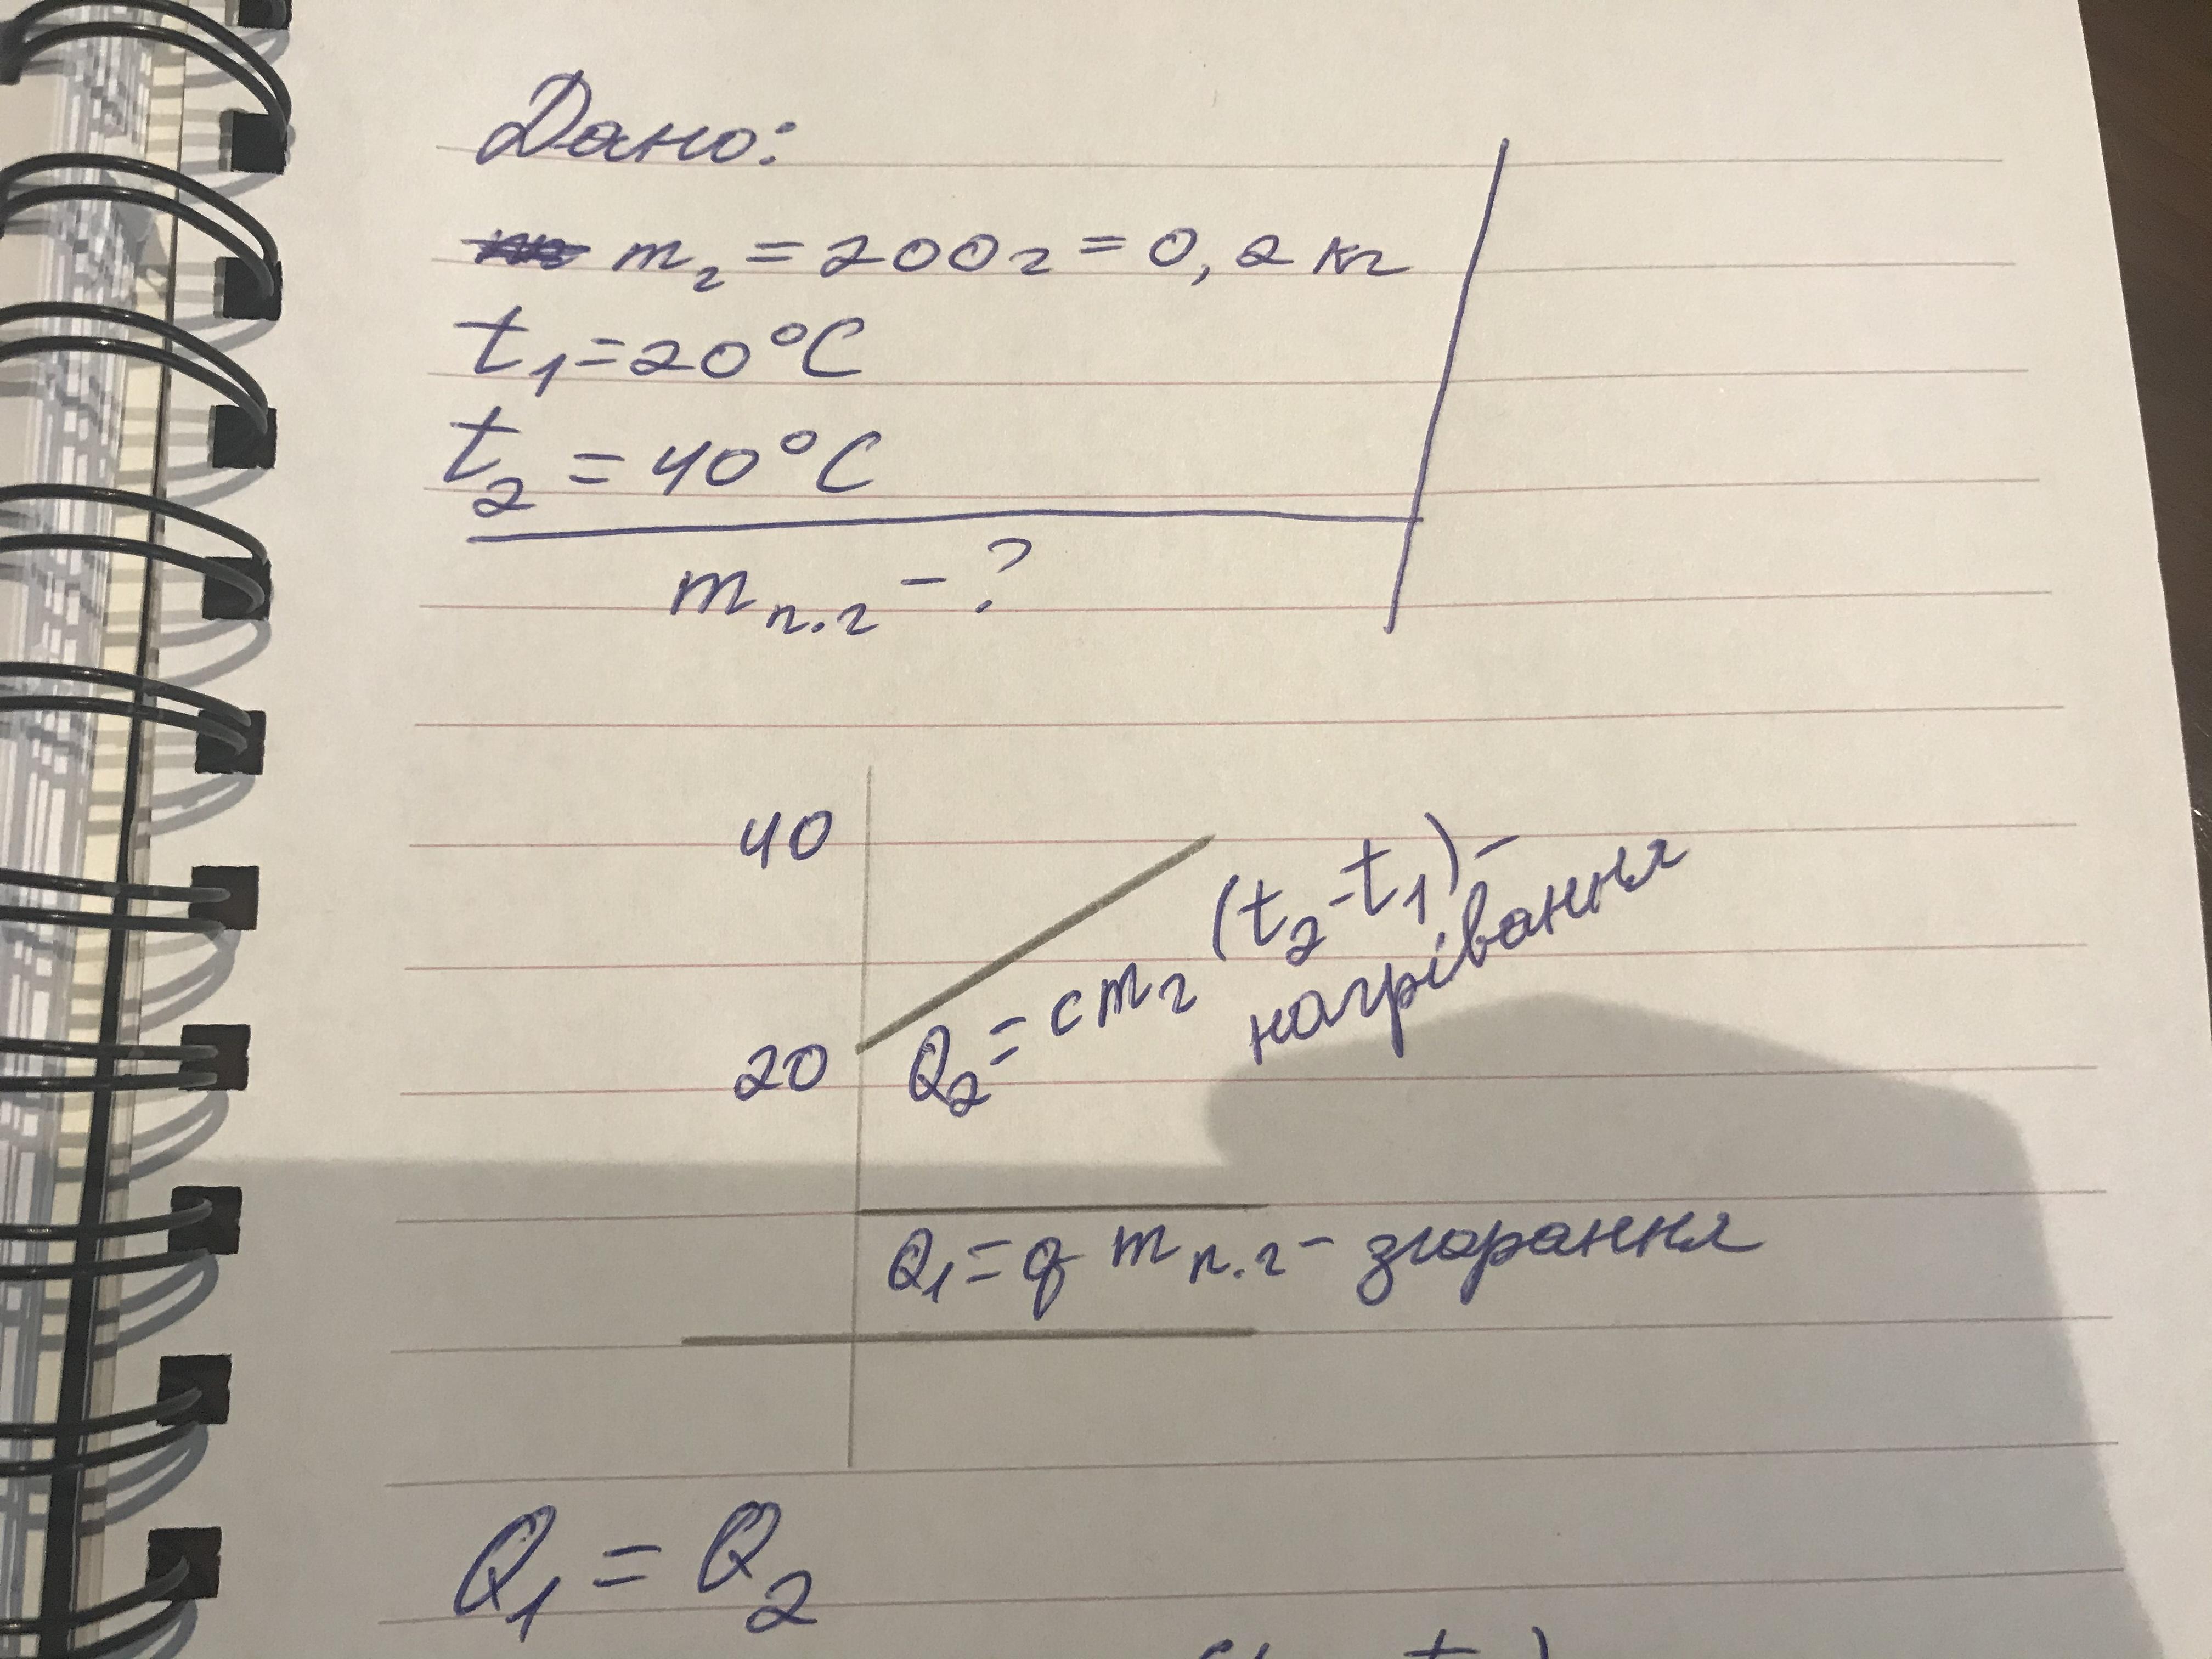 Дано:
m г = 200 г = 0,2 кг
t₁ = 20°C
t₂ = 40°C
m п.г - ?
40
20
Q₂ = cm г (t₂ - t₁) -
нагрівання
Q₁ = q m п.г - згорання
Q₁ = Q₂